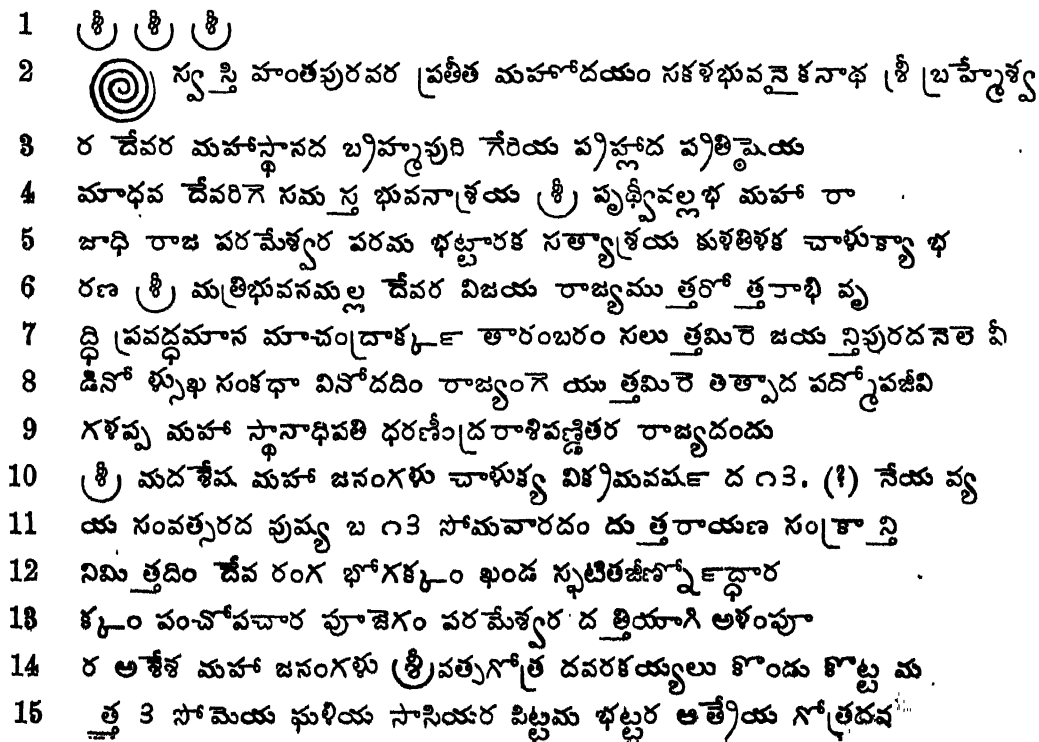 1 శ్రీ శ్రీ శ్రీ
2 స్వస్తి హంతపురవర ప్రతీత మహోదయం సకళభువనైకనాథ శ్రీ బ్రహ్మేశ్వ
3 ర దేవర మహాస్థానద బ్రహ్మపురి గేరియ ప్రహ్లాద ప్రతిష్ఠెయ
4 మాధవ దేవరిగె సమస్త భువనాశ్రయ శ్రీ పృథ్వీవల్లభ మహా రా
5 జాధి రాజ పరమేశ్వర పరమ భట్టారక సత్యాశ్రయ కుళతిళక చాళుక్యా భ
6 రణ శ్రీ మత్రిభువనమల్ల దేవర విజయ రాజ్యముత్తరోత్తరాభి వృ
7 ద్ధి ప్రవద్ధమాన మాచంద్రార్క్క తారంబరం సలుత్తమిరె జయన్తిపురదనెలె వీ
8 డినోళ్సుఖ సంకథా వినోదదిం రాజ్యంగెయుత్తమిరె తత్పాద పద్మోపజీవి
9 గళప్ప మహా స్థానాధిపతి ధరణీంద్రరాశిపణ్డితర రాజ్యదందు
10 శ్రీ మదశేష మహా జనంగళు చాళుక్య విక్రమవర్ష ద ౧౩. (?) నేయ వ్య
11 య సంవత్సరద పుష్య బ ౧౩ సోమవారదందుత్తరాయణ సంక్రాన్తి
12 నిమిత్తదిం దేవ రంగ భోగక్కం ఖండ స్ఫటితజీర్ణ్నోద్ధార
13 క్కం పంచోపచార పూజెగం పరమేశ్వర దత్తియాగి అళంపూ
14 ర అశేశ మహా జనంగళు శ్రీవత్సగోత్ర దవరకయ్యలు కొండు కొట్ట మ
15 త్త ౩ సోమెయ ఘళియ సాసియర విట్టమ భట్టర ఆత్రేయ గోత్రదవ